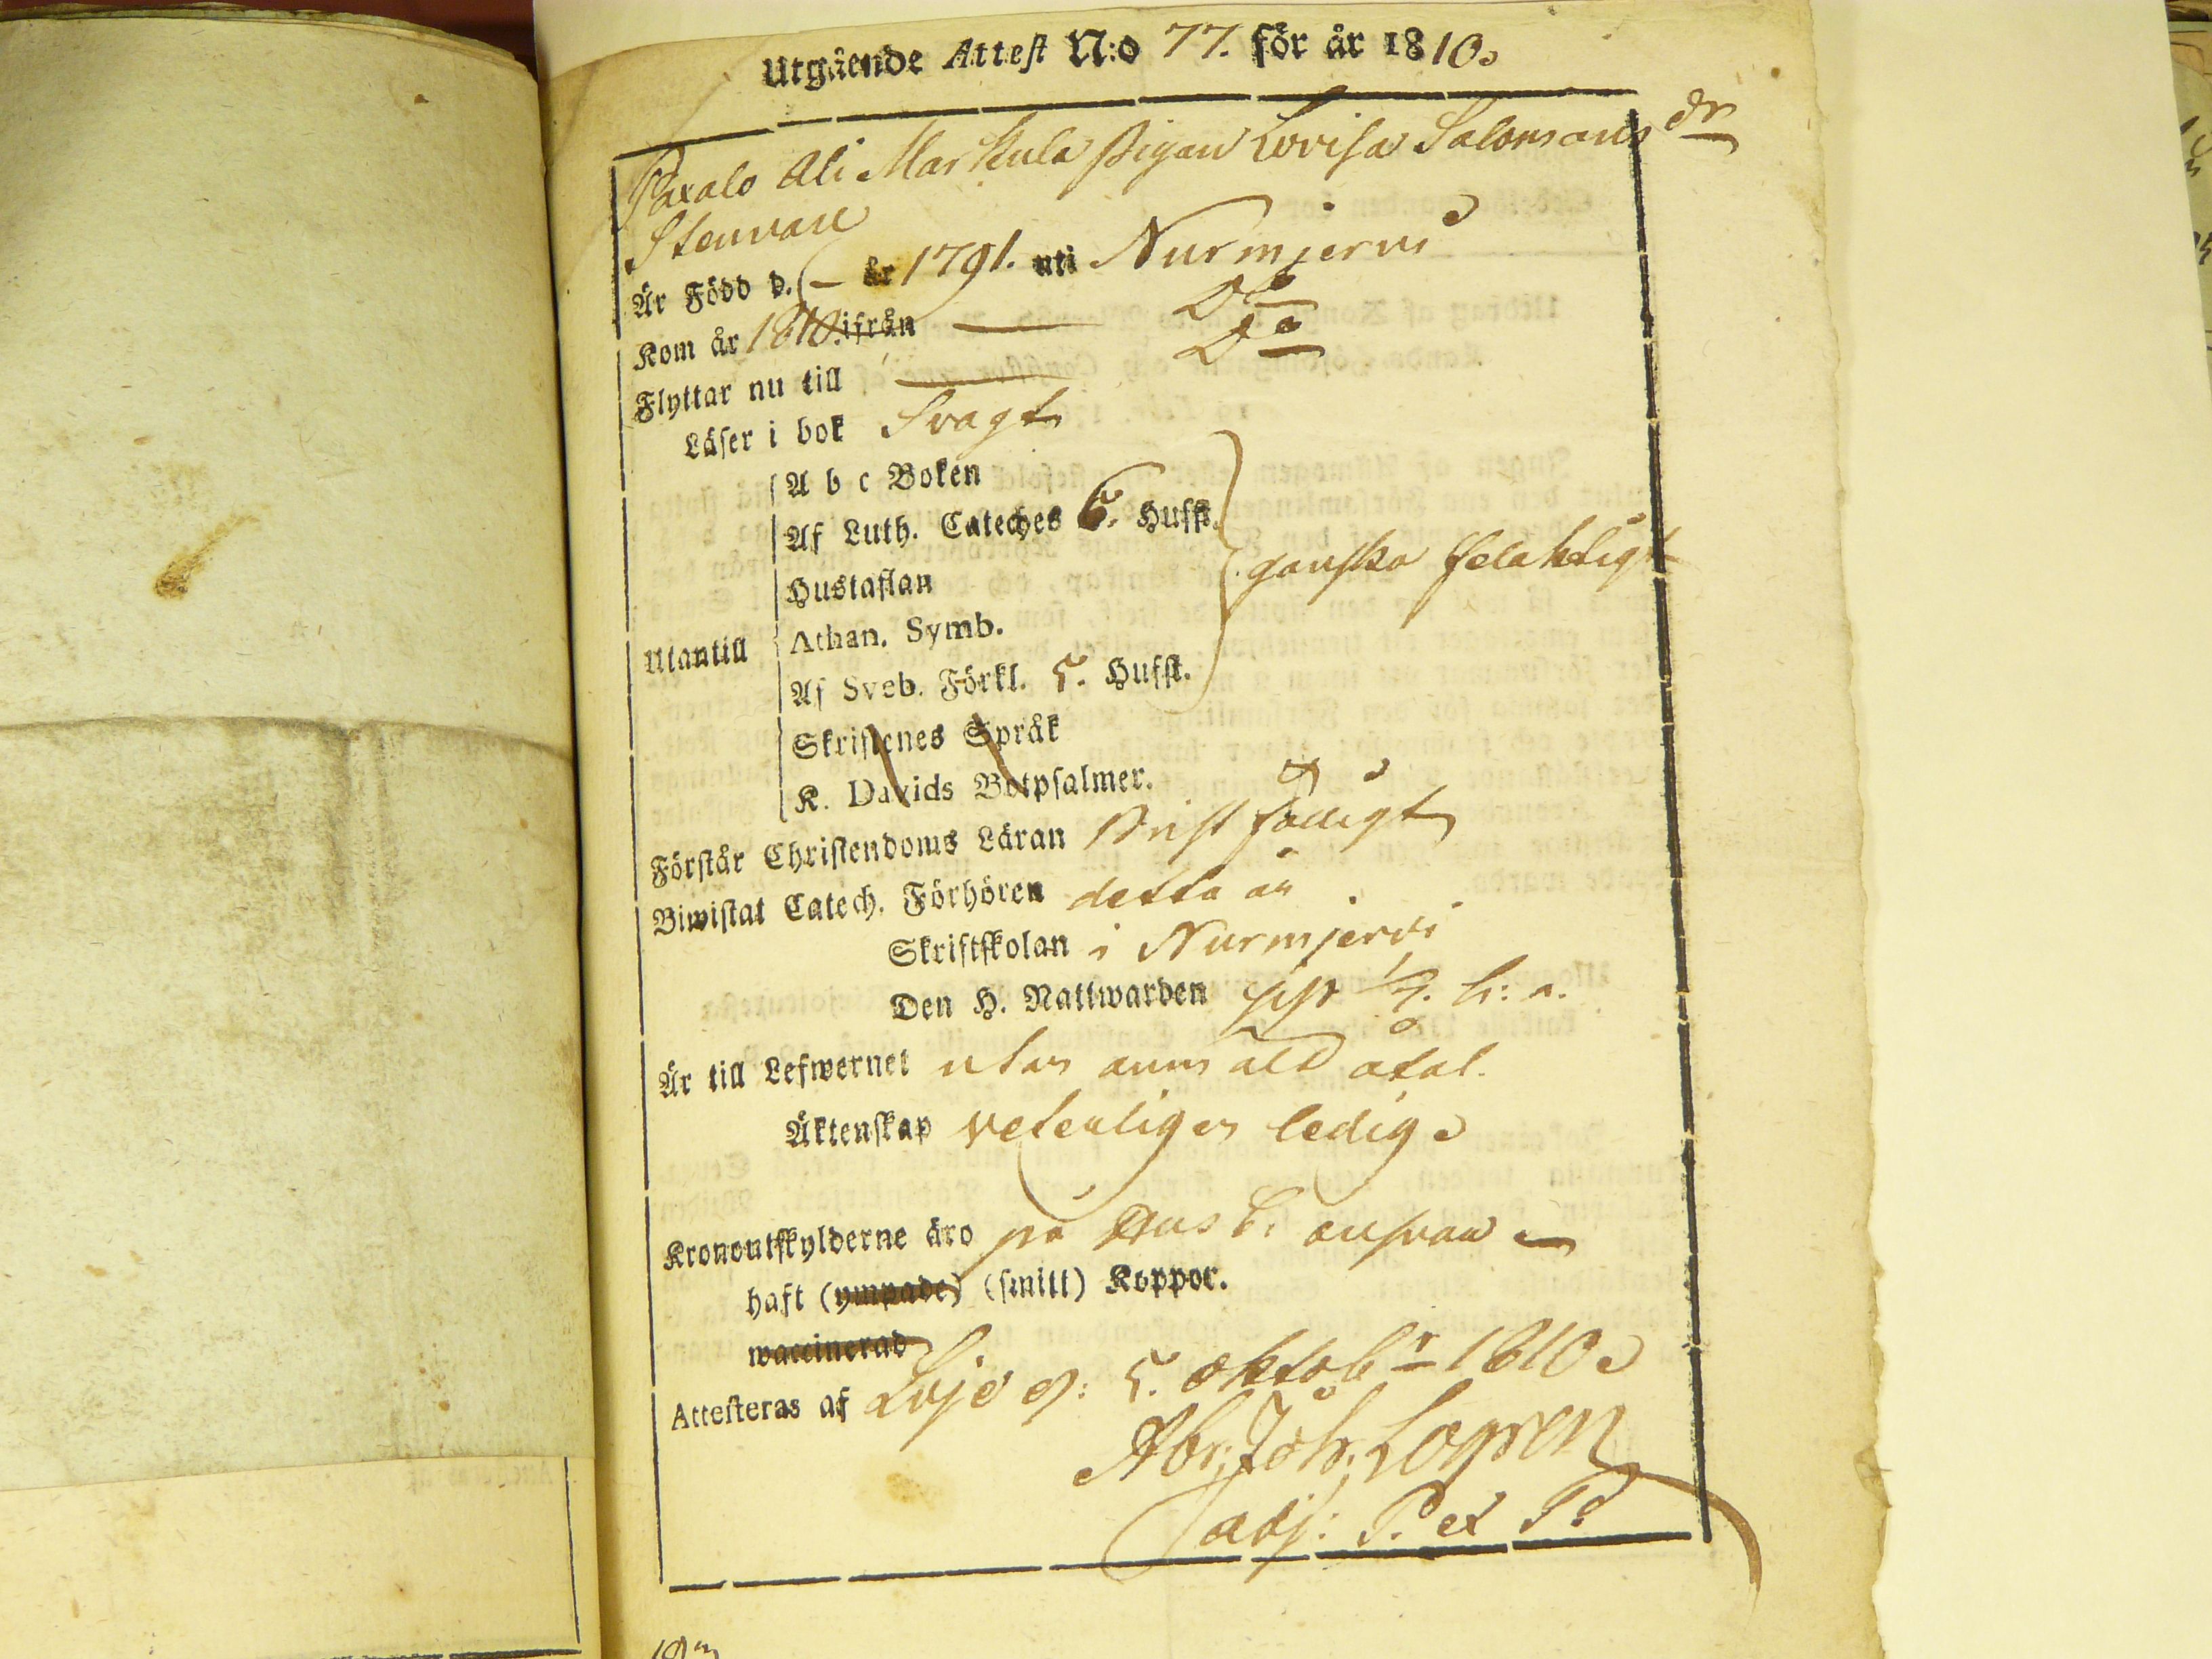 Utgående Attest N:o 77. för år 1810.
Paxalo Ali Markula Pigan Lovisa Salomons dr
Stenvall
Är Född d. – år 1791. uti Nurmjervi
Kom år 1810. ifrån — Do
Flyttar nu till — Do
Läser i bok Svagt
A b c Boken
Af Luth. Cateches 6. Hufst.
Hustaflan
ganska felaktigt
Utantill
Athan. Symb.
Af Sveb. Förkl. 5. Hufst.
Skriftenes Språk
K. Davids Botpsalmer.
Förstår Christendoms Läran Bristfälligt
Biwistat Catech. Förhören detta år
Skriftskolan i Nurmjervi
Den H. Nattwarden sist h: a.
Är till Lefwernet utan anmäld åtal.
Äktenskap veterligen ledig
Kronoutskylderne äro på Husb: ansvar
haft (ympade) (smitt) Koppor.
waccinerad
Attesteras af Lojo d: 5. Oktobr 1810
Abr: Joh: Logren
adj: P. et P.